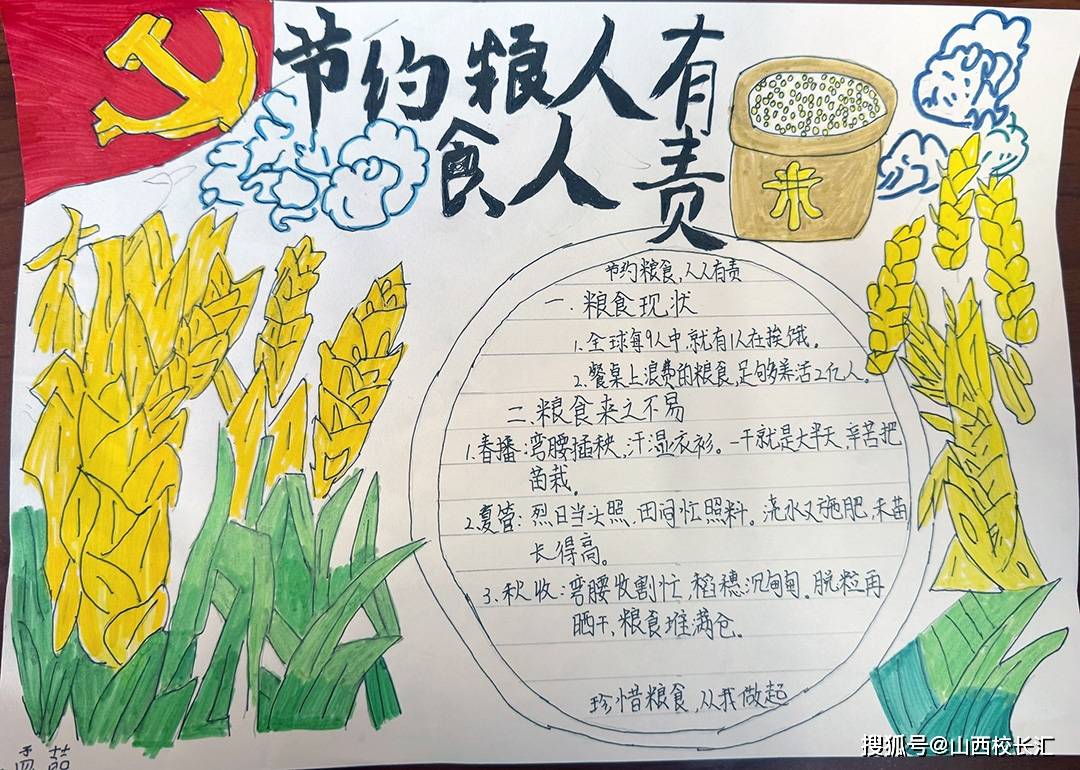 节约粮食人人有责
米
节约粮食,人人有责
一.粮食现状
1.全球每9人中,就有1人在挨饿。
2.餐桌上浪费的粮食,足够养活2亿人。
二.粮食来之不易
1.春播:弯腰插秧,汗湿衣衫。一干就是大半天,辛苦把
苗栽。
2.夏管:烈日当头照,田间忙照料。浇水又施肥,禾苗
长得高。
3.秋收:弯腰收割忙,稻穗沉甸甸。脱粒再
晒干,粮食堆满仓。
珍惜粮食,从我做起
搜狐号@山西校长汇